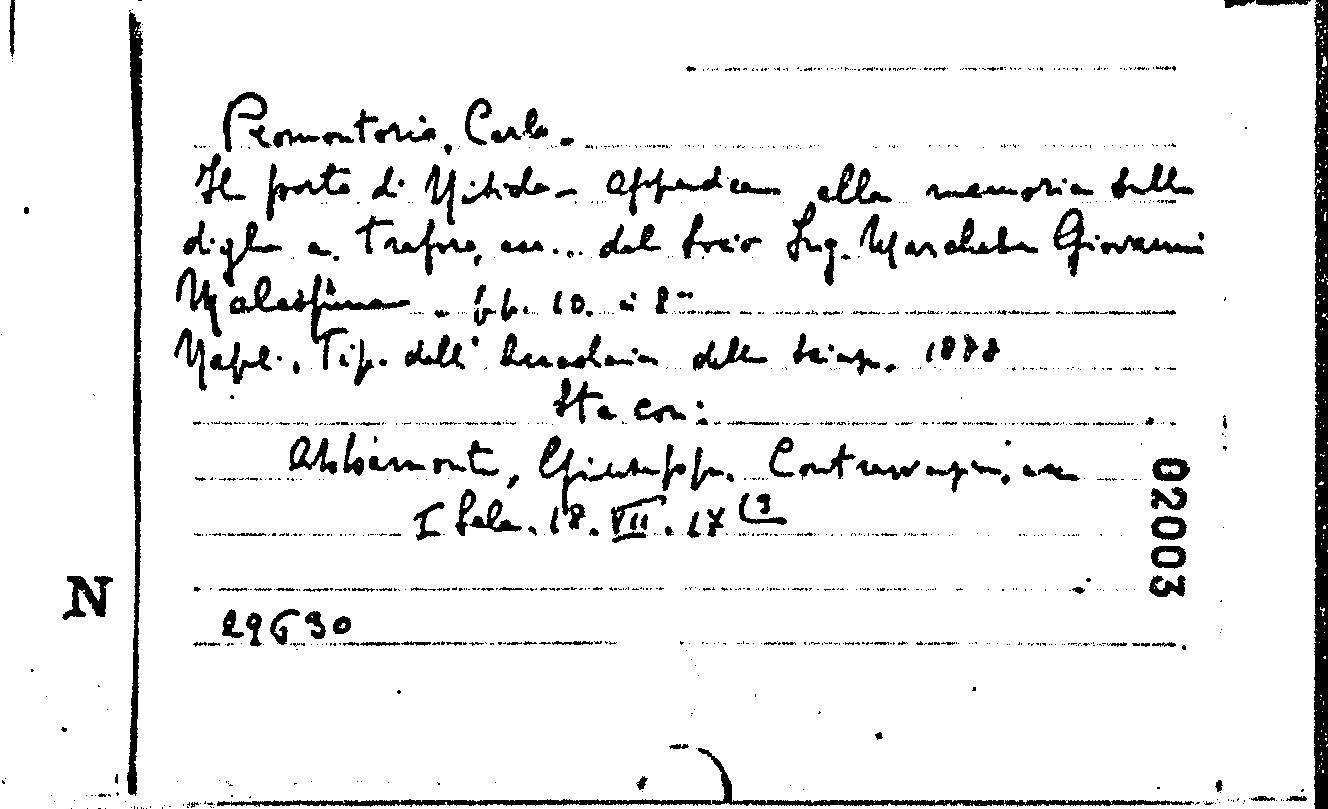 Promontorio, Carlo.
Il porto di Nisida - Appendice alla memoria sulle
dighe a traforo, ecc... del socio Ing. Marchese Giovanni
Malaspina - pp. 10. in 8°
Napoli, Tip. dell' Accademia delle Scienze, 1878
Sta con:
Abbamonte, Giuseppe. ecc
I Sala. 18. VII. 17 (9
29630
N
02003